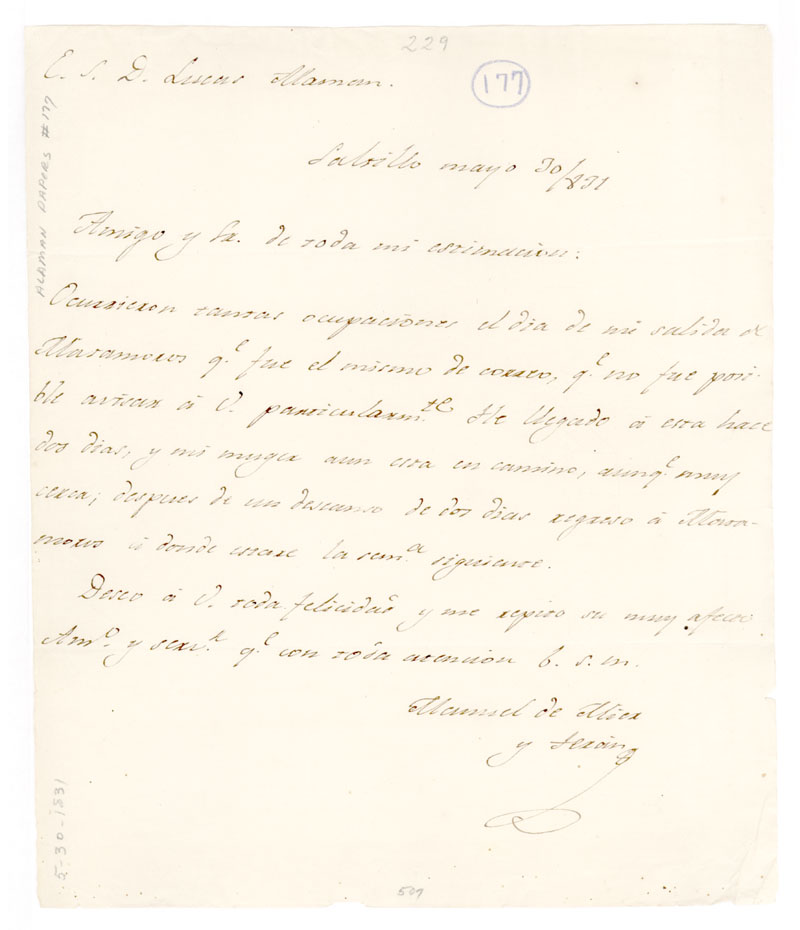 229
177
E. S. D. Lucas Alaman.
Saltillo mayo 30/831
Amigo y Sr. de toda mi estimacion:
Ocurrieron tantas ocupaciones el dia de mi salida de
Matamoros qe. fue el mismo de correo, qe. no fue posi-
ble avisar á V. particularmte. He llegado á esta hace
dos dias, y mi muger aun esta en camino, aunqe. muy
cerca; despues de un descanso de dos dias regreso á Mata-
moros á donde estare la sema. siguiente.
Deseo á V. toda felicidad y me repito su muy afecto
Amo. y serv.r qe. con toda atencion b. s. m.
Manuel de Mier
y Terán
ALAMAN PAPERS #177
5-30-1831
509